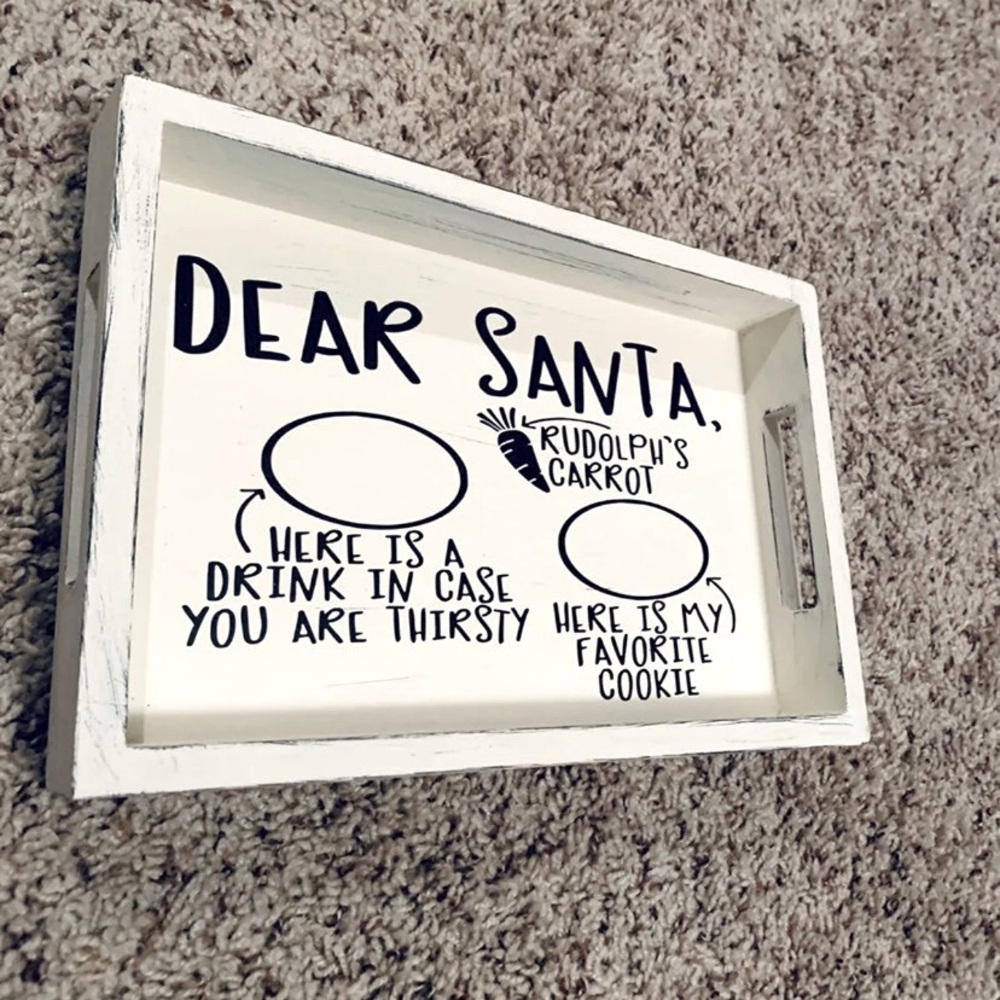 DEAR SANTA,
RUDOLPH'S
CARROT
HERE IS A
DRINK IN CASE
YOU ARE THIRSTY
HERE IS MY
FAVORITE
COOKIE